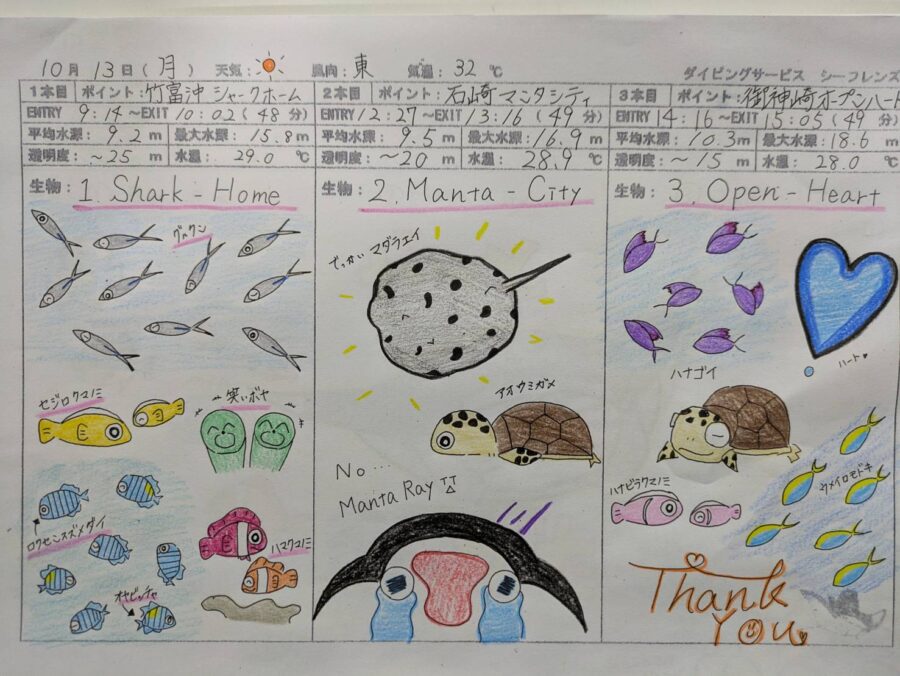 10月 13日(月) 天気: 風向:東 気温:32℃
ダイビングサービス シーフレンズ
1本目 ポイント:竹富沖 シャークホーム
ENTRY 9:14 ~EXIT 10:02 (48分)
平均水深:9.2m 最大水深:15.8m
透明度:~25m 水温:29.0℃
生物:1. Shark-Home
グルクン
セジロクマノミ
笑いボヤ
ロクセンスズメダイ
オヤビッチャ
ハマクマノミ
2本目 ポイント:石崎マンタシティ
ENTRY 12:27 ~EXIT 13:16 (49分)
平均水深:9.5m 最大水深:16.9m
透明度:~20m 水温:28.9℃
生物:2. Manta-City
でっかいマダラエイ
アオウミガメ
No...
Manta Ray
3本目 ポイント:御神崎オープンハート
ENTRY 14:16 ~EXIT 15:05 (49分)
平均水深:10.3m 最大水深:18.6m
透明度:~15m 水温:28.0℃
生物:3. Open-Heart
ハート
ハナゴイ
ハナビラクマノミ
ウメイロモドキ
Thank
You